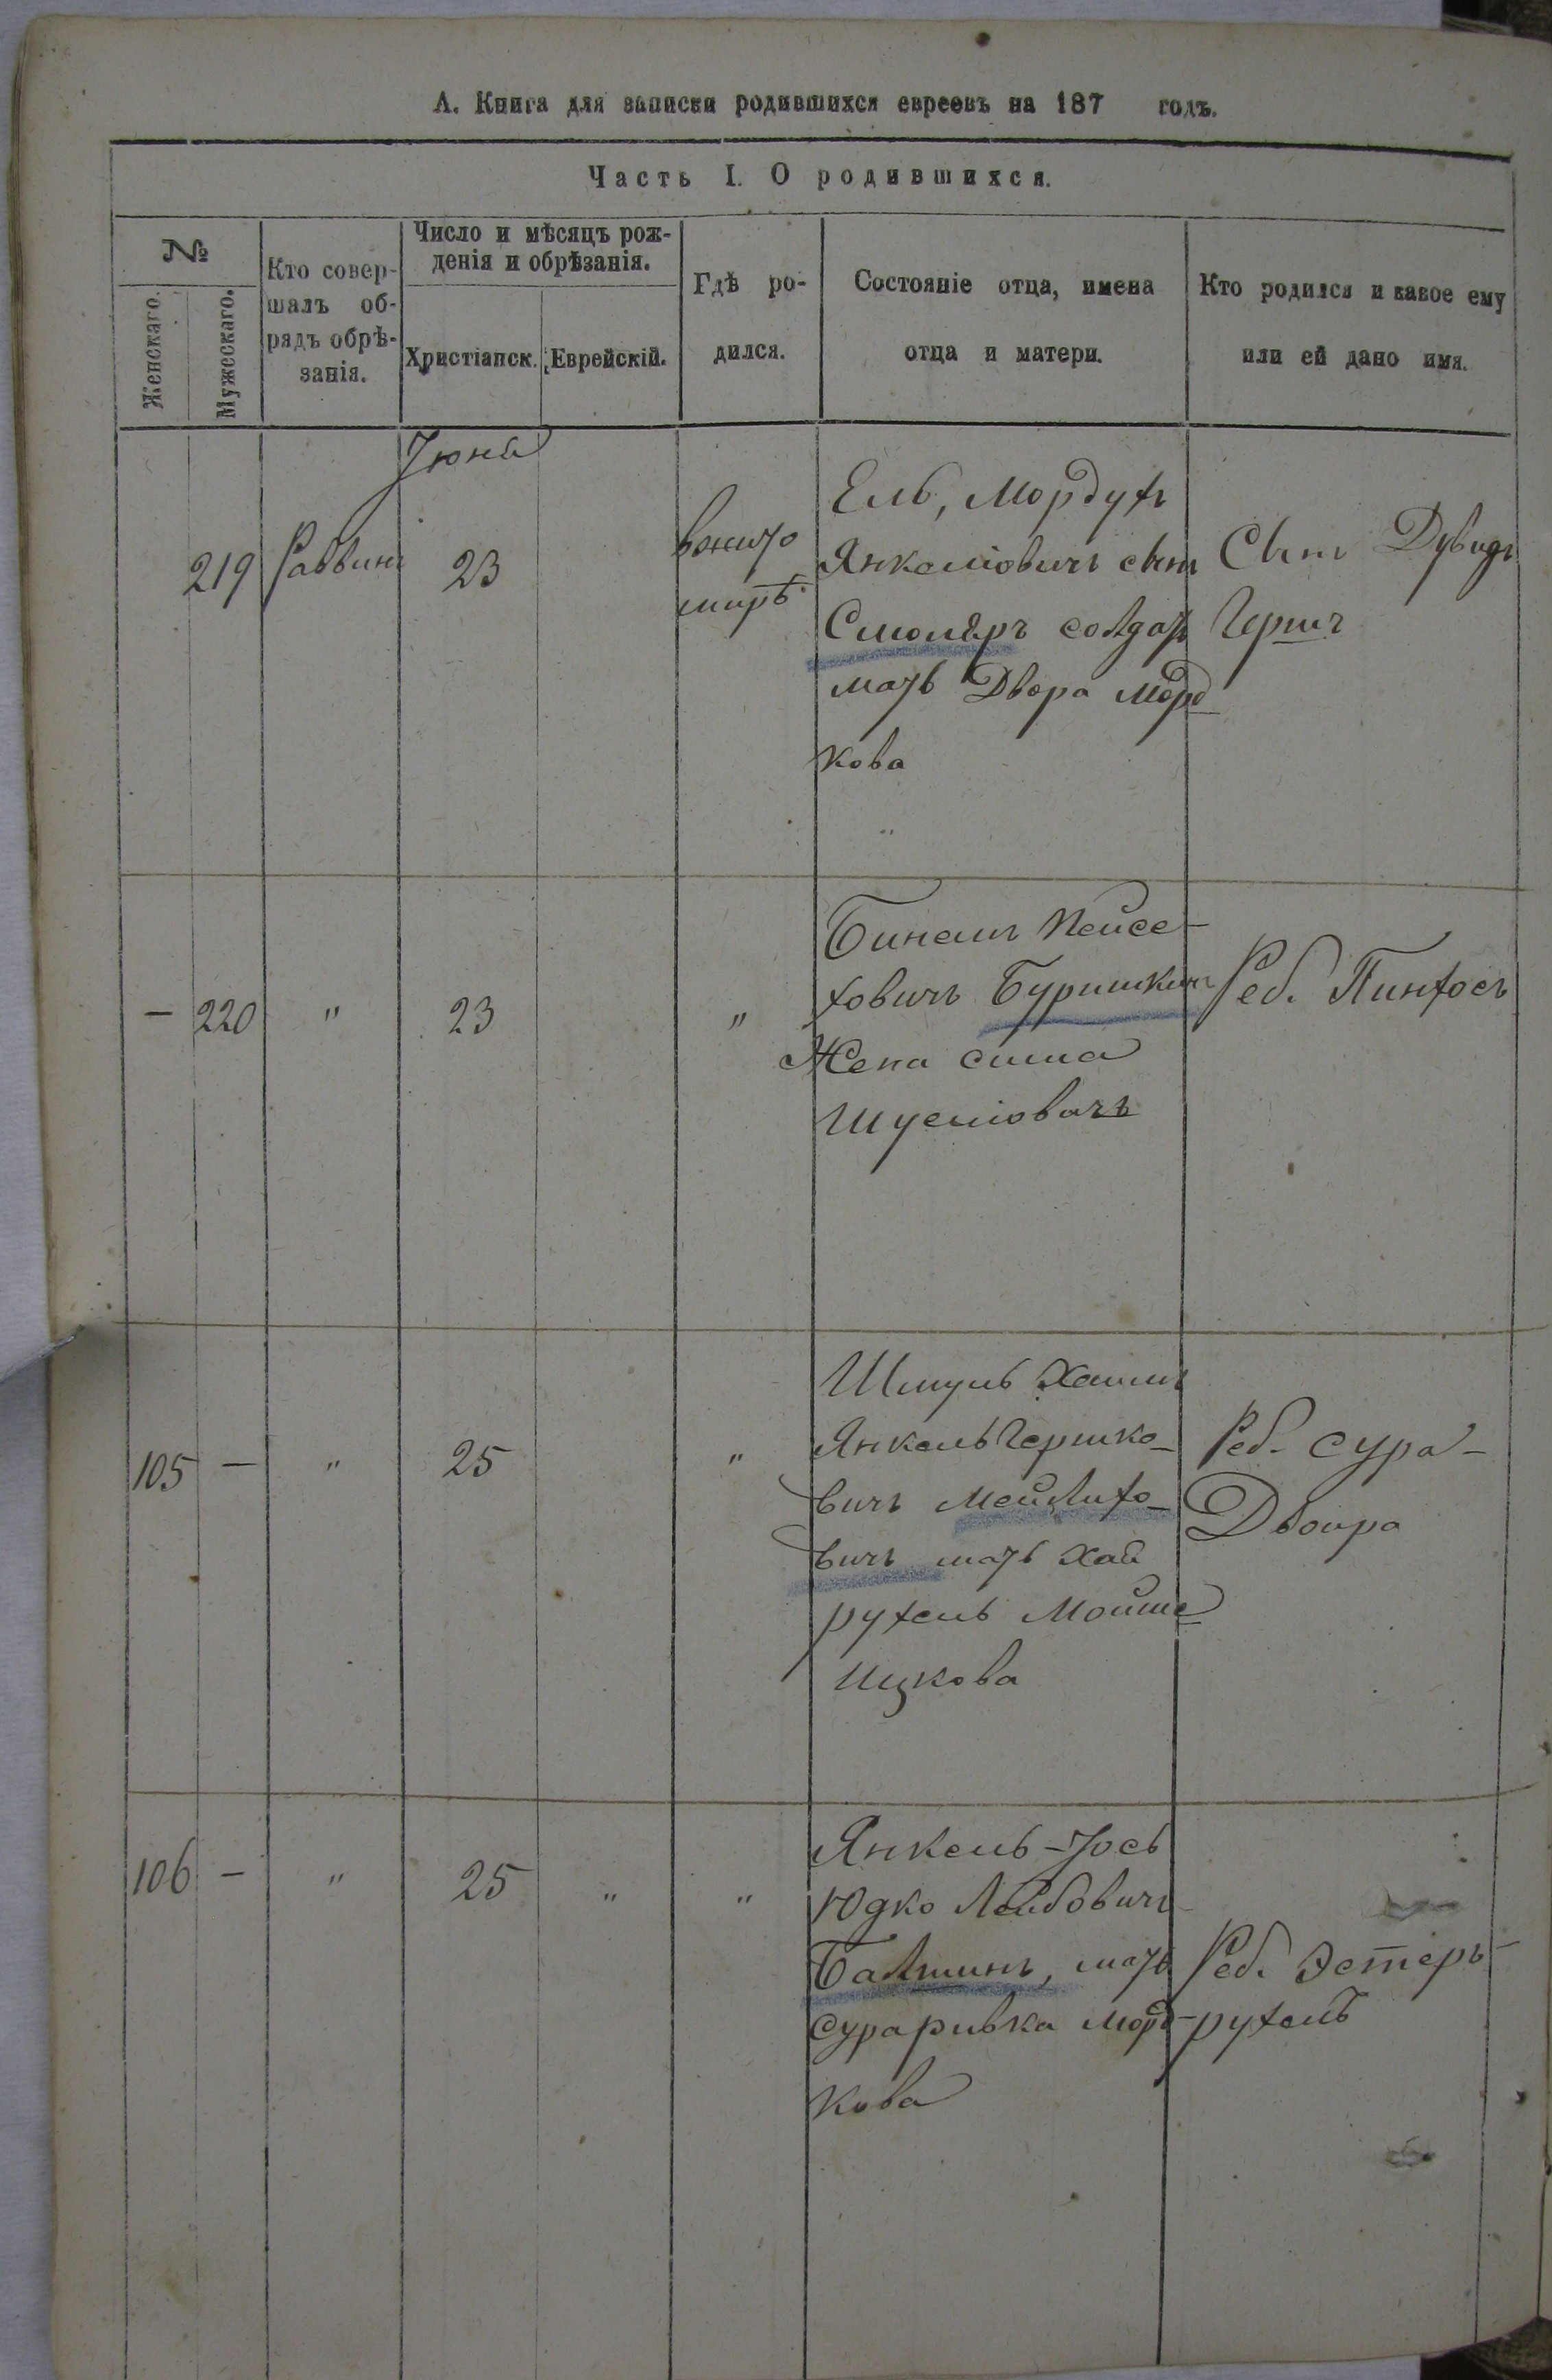 А. Книга для записки родившихся евреевъ на 187 годъ.
Часть I. О родившихся.
№
Женскаго.
Мужескаго.
Кто совер-
шалъ об-
рядъ обрѣ-
занія.
Число и мѣсяцъ рож-
денія и обрѣзанія.
Христіанск.
Еврейскій.
Гдѣ ро-
дился.
Состояніе отца, имена
отца и матери.
Кто родился и какое ему
или ей дано имя.
Іюня
219
Раввинъ
23
вжито
мирѣ
Ель, Мордухъ
Янкеліовичъ сынъ
Смоляръ солдатъ
мать Двора Морд
кова
Сынъ Дувидъ
Гершъ
-
220
"
23
"
Бинемъ Пейсе-
ховичъ Буришкинъ
Жена сима
Шуеліовичъ
Реб. Пинхосъ
105
-
"
25
"
Шмуль Хаимъ
Янкель Гершко-
вичъ Мейлихо-
вичъ мать Хая
рухель Мойше
Ицкова
Реб. Сура-
Двоира
106
-
"
25
"
"
Янкель-Іось
Юдко Лейбовичъ
Балтинъ, мать
Сураривка Морд-
кова
Реб. Эстеръ-
рухель